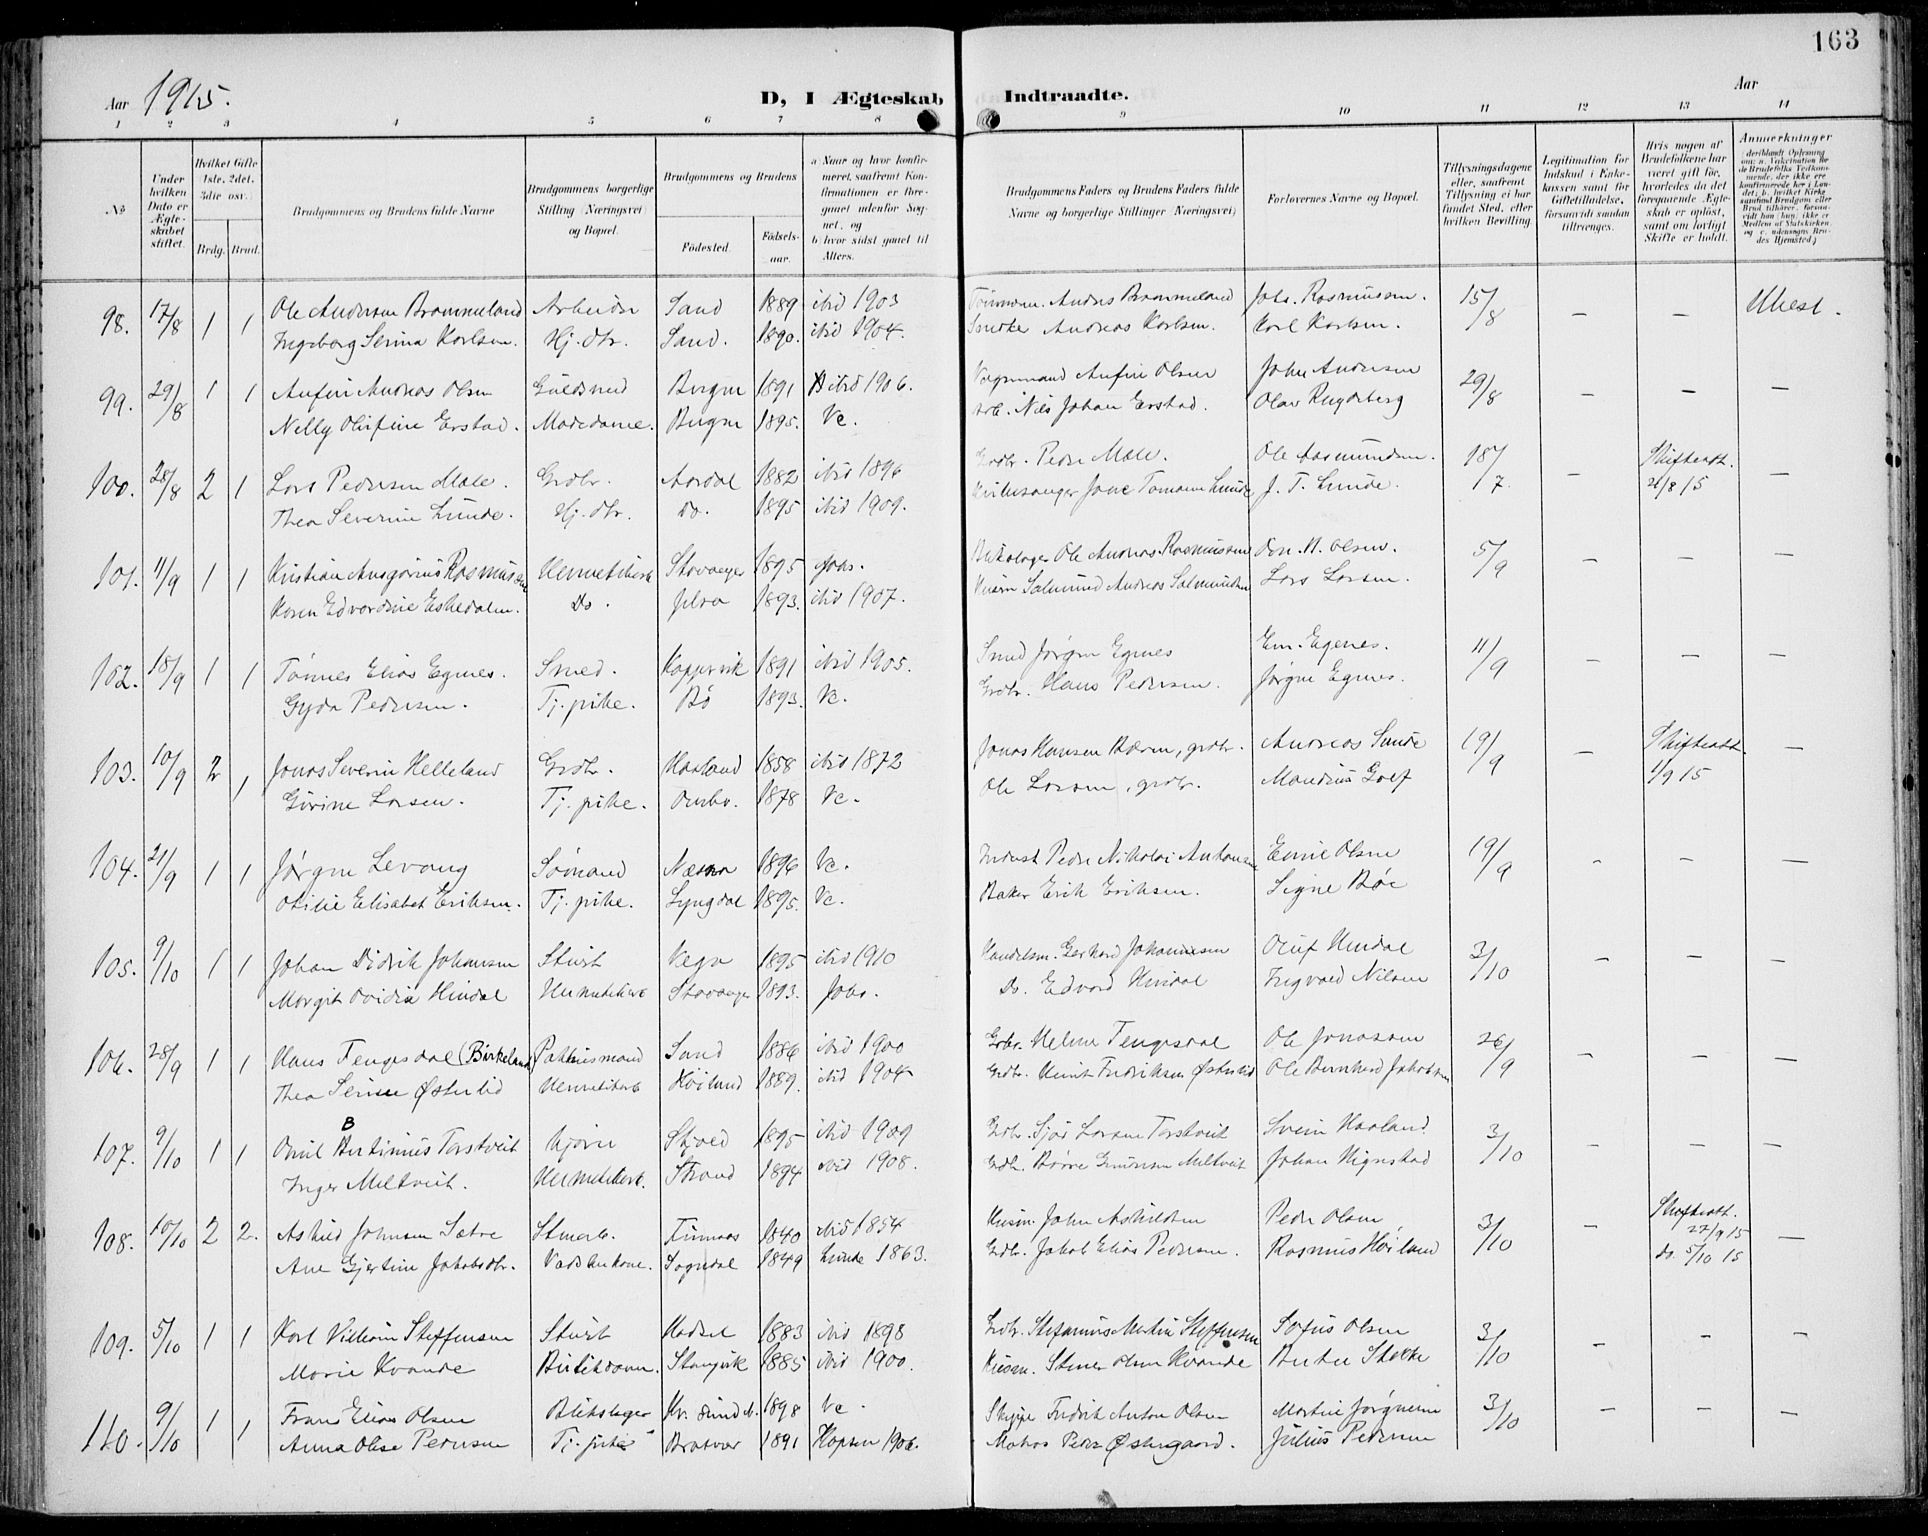 163
Aar 1915.
D, I Ægteskab Indtraadte.
Aar
1 2 3 4 5 6 7 8 9 10 11 12 13 14
№
Under hvilken Dato er Ægteskabet stiftet.
Hvilket Gifte 1ste, 2det, 3die osv.
Brdg. Brud.
Brudgommens og Brudens fulde Navne
Brudgommens borgerlige Stilling (Næringsvei) og Bopæl.
Brudgommens og Brudens
Fødested. Fødselsaar.
a Naar og hvor konfirmeret, saafremt Konfirmationen er foregaaet udenfor Sognet, og
b hvor sidst gaaet til Alters.
Brudgommens Faders og Brudens Faders fulde Navne og borgerlige Stillinger (Næringsvei)
Forlovernes Navne og Bopæl.
Tillysningsdagene eller, saafremt Tillysning ei har fundet Sted, efter hvilken Bevilling.
Legitimation for Indskud i Enkekassen samt for Giftetilladelse, forsaavidt saadan tiltrænges.
Hvis nogen af Brudefolkene har været gift før, hvorledes da det foregaaende Ægteskab er opløst, samt om lovligt Skifte er holdt.
Anmerkninger
98. 17/8 1 1 Ole Andersen Brommeland Arbeider Sand 1889 ibid 1903 Anders Brommeland Johs. Rasmussen. 15/8 – – Uhest.
Ingeborg Serina Karlsen. Hj. dtr. Sand. 1890. ibid 1904. Andreas Karlsen. Karl Karlsen.
99. 29/8 1 1 Anfin Andreas Olsen Guldsmed Bergen 1891 ibid 1906. Anfin Olsen John Andersen 29/8 – – –
Nelly Olufine Erstad. Modedame. Bergen 1895. Vc. Arb. Nils Johan Erstad. Olav Rugdeberg
100. 28/8 2 1 Lars Pedersen Mæle. Grdbr. Aardal 1882 ibid 1896 Grdbr. Peder Mæle. Ole Aasmundsen. 18/7 – Skifteatt. –
Thea Severine Lunde. Hj. dtr. Do. 1895 ibid 1909. Kirkesanger Jone Tomassen Lunde J. T. Lunde. 21/8 15
101. 11/9 1 1 Kristian Ansgarius Rasmussen Hermetikarb Stavanger 1895 Johs. Ole Andreas Rasmussen Olsen. 5/9 – – –
Karen Edvardine Eskedalen. Do. Jelsa 1893. ibid 1907. Husm Salmund Andreas Salmundsen Lars Larsen.
102. 18/9 1 1 Tønnes Elias Egenes. Smed. Kopervik 1891 ibid 1905. Smed Jørgen Egenes Em. Egenes. 11/9 – – –
Gyda Pedersen. Tj. pike. Bø 1893. Vc. Grdbr. Hans Pedersen. Jørgen Egenes.
103. 10/9 2 1 Jonas Severin Helleland Grdbr. Haaland 1858 ibid 1872 Jonas Hansen Bæren, grdbr. Andreas Sunde 19/9 – Skifteatt. –
Gurine Larsen. Tj. pike. Ombo. 1878 Vc. Ole Larsen, grdbr. Mandius Goef 1/9 15
104. 21/9 1 1 Jørgen Levang Sømand Næsna 1896 Vc. Peder Nikolai Antonsen Emil Olsen 19/9 – – –
Otilie Elisabet Eriksen. Tj. pike. Lyngdal 1895. Vc. Baker Erik Eriksen. Signe Bøe
105. 9/10 1 1 Johan Didrik Johansen Stuert Vega 1895 ibid 1910 Handelsm. Gerhard Johannesen Oluf Hindal 3/10 – – –
Margit Ovidia Hindal Hermetikarb Stavanger 1893. Johs. Do. Edvard Hindal Ingvald Nilsen
106. 28/9 1 1 Hans Tengesdal (Birkeland) Pakhusmand Sand 1886 ibid 1900 Grbr. Helme Tengesdal Ole Jonassen 26/9 – – –
Thea Serine Østerlid Hermetikarb Høiland 1889. ibid 1904 Grdbr. Fredriksen Østerlid Ole Bernhard Jakobsen
107. 9/10 1 1 Omil Bertinius Torstveit Kjører Skjold 1895 ibid 1909 Grdbr. Larsen Torstveit Svein Haaland 3/10 – – –
Inger Meltveit. Hermetikarb. Strand 1894 ibid 1908. Grdbr. Børre Meltveit Johan Vignestad
108. 10/10 2 2. Askild Johnsen Sætre Stuearb. Finnaas 1840 ibid 1854 Husm. John Askildsen Peder Olsen 3/10 – Skifteatt. 27/9 15 –
Ane Gjertine Jakobsdtr. Vadskekone. Sogndal 1849 Lunde 1863. Grdbr. Jakob Elias Pedersen. Rasmus Høiland do. 5/10 15
109. 5/10 1 1 Karl Vilhelm Steffensen Stuert Hadsel 1883 ibid 1898 Grdbr. Stefanus Martin Steffensen Sofus Olsen 3/10 – – –
Marie Kvande Butikdame. Stangvik 1885 ibid 1900. Husm. Stener Olsen Kvande Stokke
110. 9/10 1 1 Frans Elias Olsen Blikslager Kr. sund N. 1898 Vc. Fredrik Anton Olsen Martin Jørgensen 3/10 – – –
Anna Olise Pedersen Tj. pike Bratvær 1891 Hopen 1906. Matros Peder Østergaard. Julius Pedersen